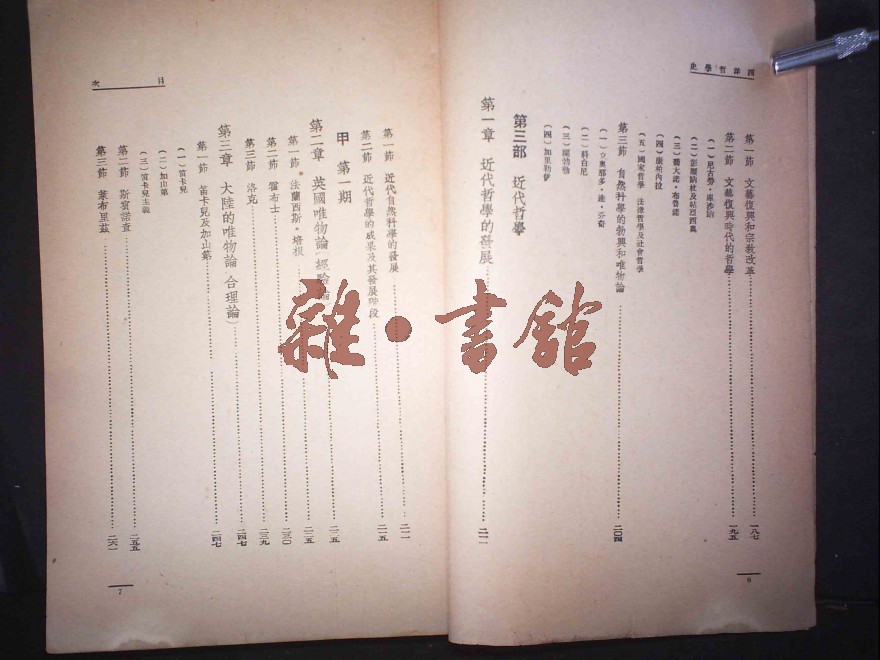 西洋哲學史
第一節 文藝復興和宗教改革 一八七
第二節 文藝復興時代的哲學 一九五
（一）尼古勞·庫沙納
（二）彭蘭納杜及帖烈西奧
（三）喬大諾·布魯諾
（四）康柏內拉
（五）國家哲學 法律哲學及社會哲學
第三節 自然科學的勃興和唯物論 二〇四
（一）立奧那多·達·芬奇
（二）科白尼
（三）開勃勒
（四）加里勒伊
第三部 近代哲學
第一章 近代哲學的發展 二一一
6
目 次
第一節 近代自然科學的發展 二一一
第二節 近代哲學的成果及其發展階段 二一五
甲 第一期
第二章 英國唯物論（經驗論 二二五
第一節 法蘭西斯·培根 二二五
第二節 霍布士 二三〇
第三節 洛克 二三九
第三章 大陸的唯物論 合理論） 二四七
第一節 笛卡兒及加山第 二四七
（一）笛卡兒
（二）加山第
（三）笛卡兒主義
第二節 斯賓諾查 二五五
第三節 萊布里茲 二六一
7
雜·書館